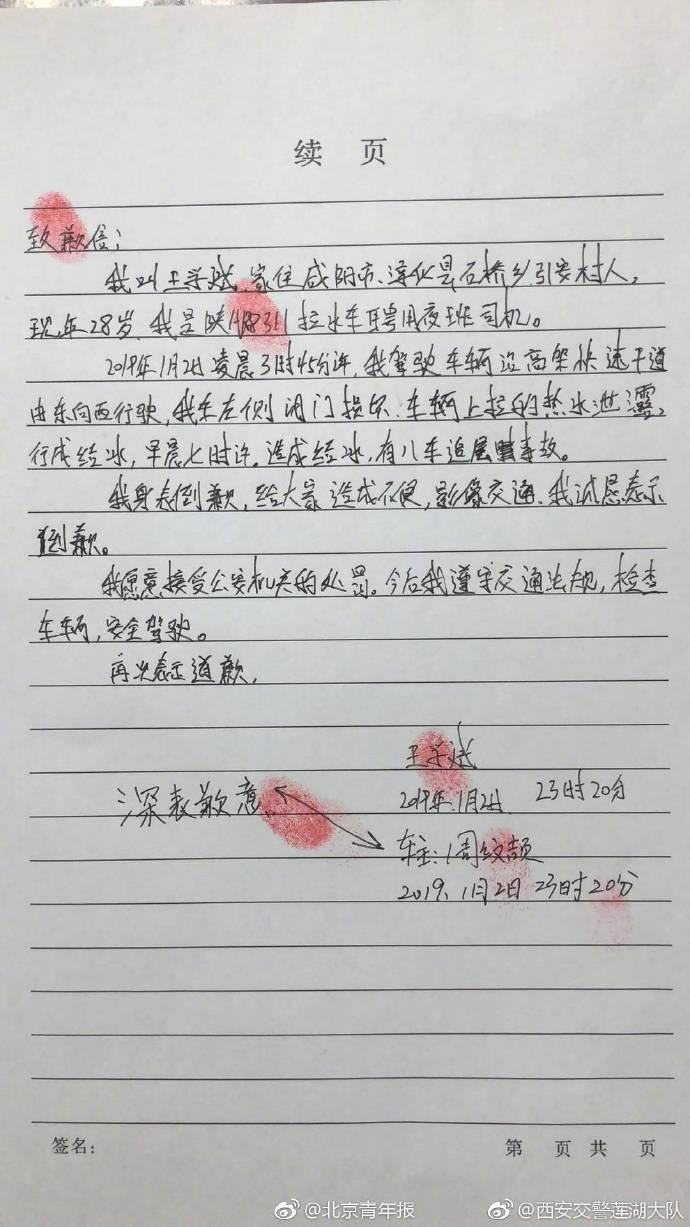 续 页
致歉信：
我叫王学斌，家住咸阳市、淳化县石桥乡引安村人，
现年28岁，我是陕 拉水车聘用夜班司机。
2019年1月2日凌晨3时45分许，我驾驶车辆沿高架快速干道
由东向西行驶，我车左侧闭门损坏、车辆上拉的热水泄露，
行成结冰，早晨七时许，造成结冰，有八车追尾事故。
我身表倒歉，给大家造成不便，影像交通、我诚恳表示
倒歉。
我愿意接受公安机关的处罚。今后我遵守交通法规，检查
车辆，安全驾驶。
再次表示道歉，
王学斌
2019年1月2日 23时20分
深表歉意
车主：周
2019、1月2日 23时20分
签名：
第 页 共 页
@北京青年报
@西安交警莲湖大队